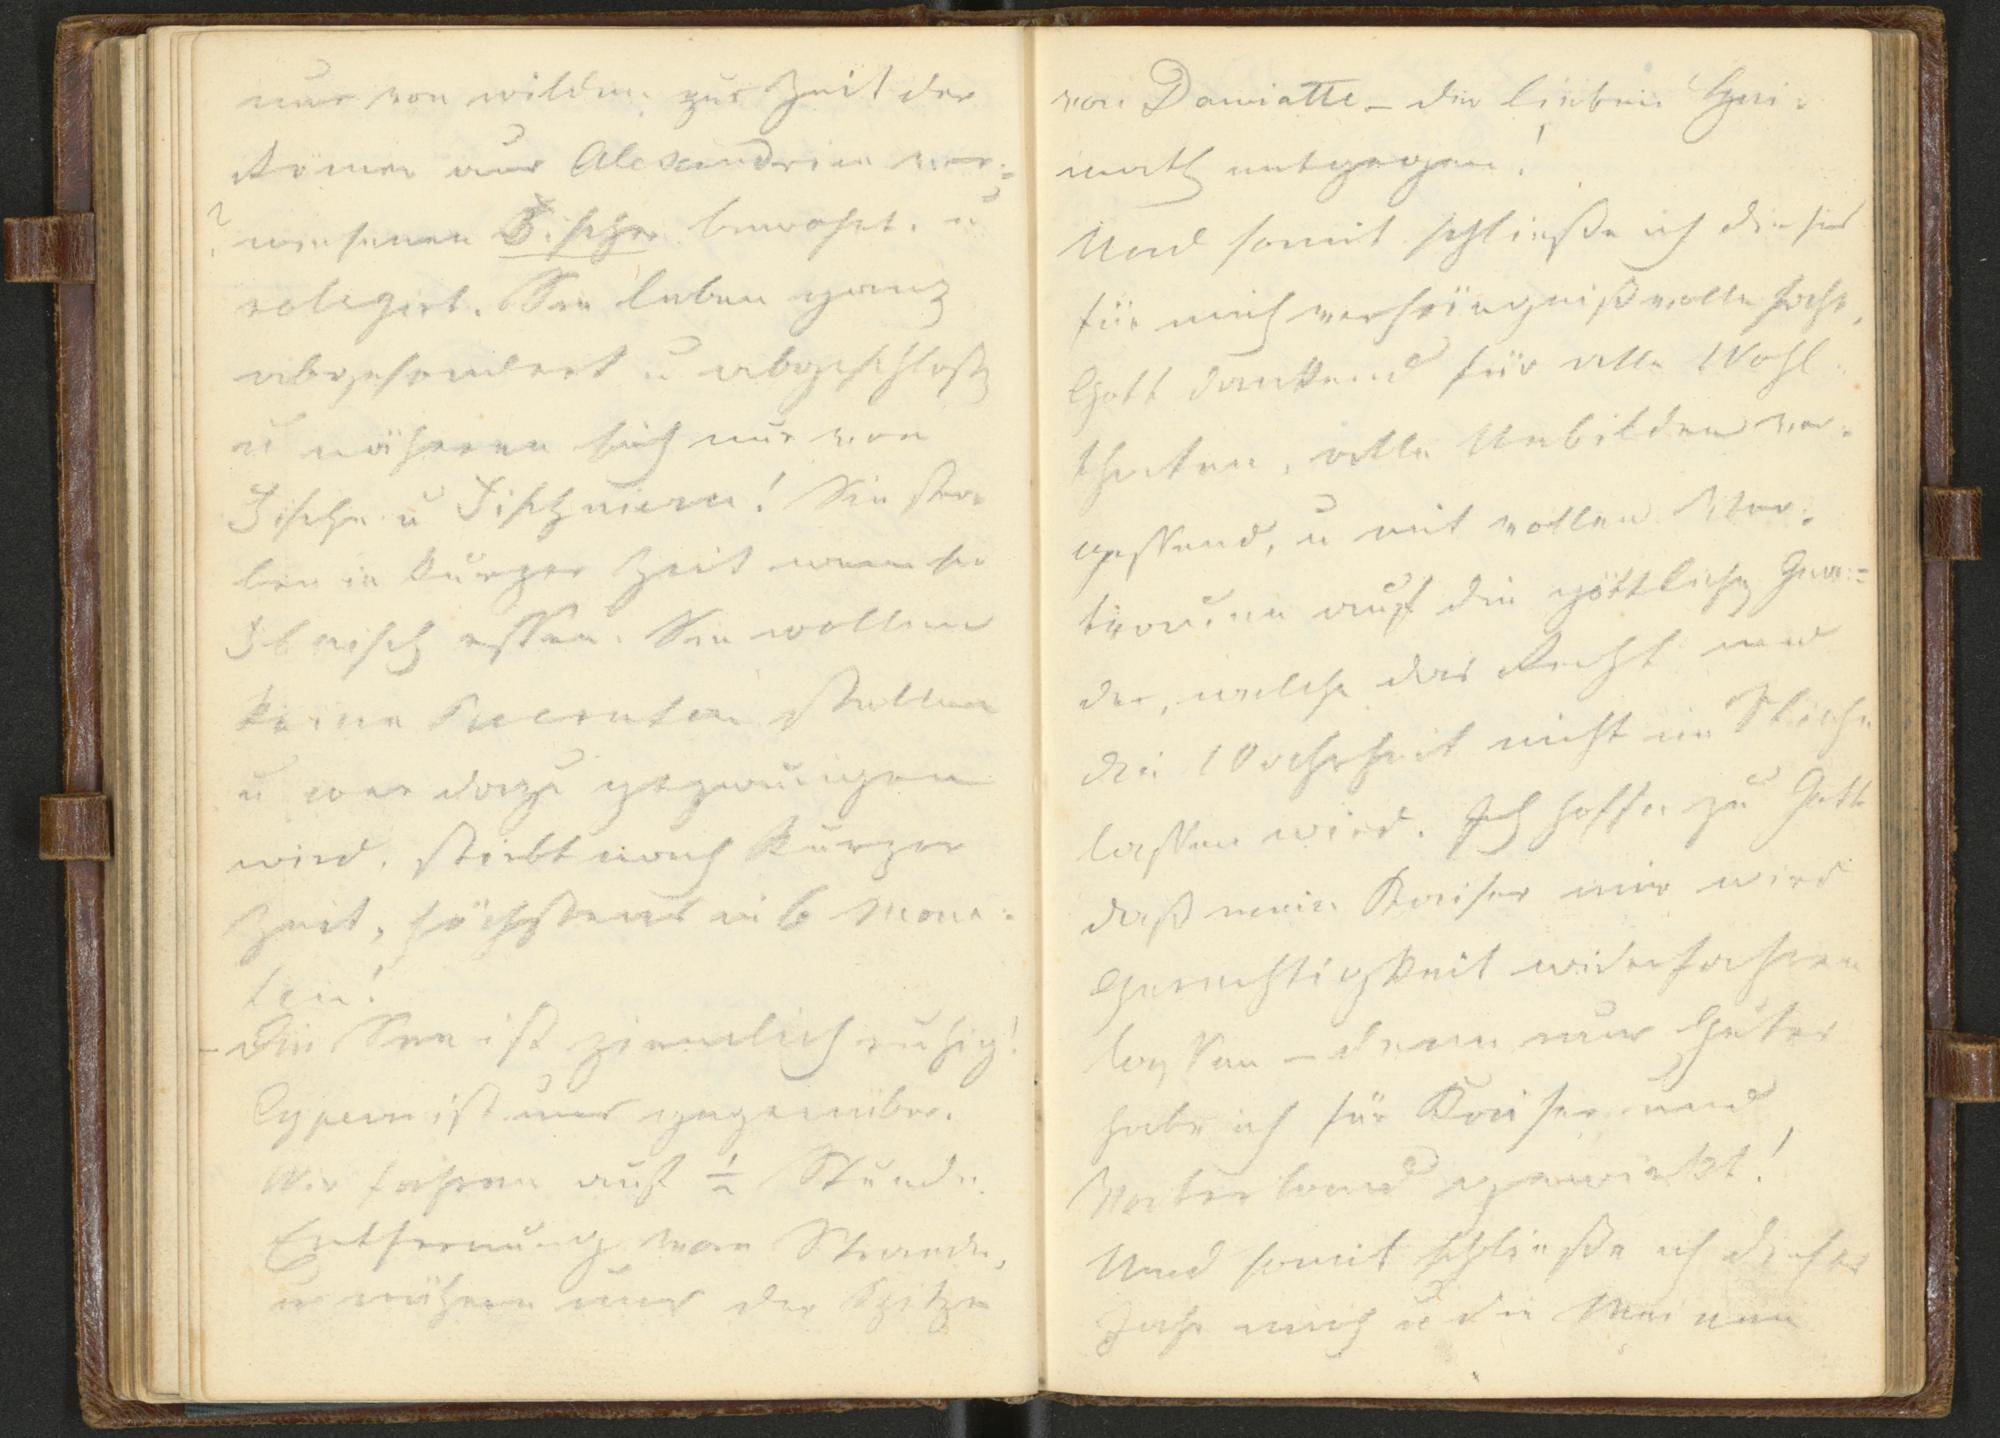 nur von wilden zur Zeit der
Römer aus Alexandrien ver=
? wiesenen Fischer bewohnt. u
relegirt. Sie leben ganz
abgesondert u abgeschloßen
u nähren sich nur von
Fische u Fischeiern! Sie ster
ben in kurzer Zeit wenn sie
Fleisch essen. Sie wollen
keine Recruten stellen
u wer dazu gezwungen
wird, stirbt nach kurzer
Zeit, höchstens in 6 Mona-
ten!
- Die See ist ziemlich ruhig!
Cypern ist uns gegenüber.
Wir fahren auf ½ Stunde
Entfernung vom Strande,
u nähern uns der Spitze
von Damiatte – der lieben Hei-
math entgegen!
Und somit schließe ich dieses
für mich verhängnißvolle Jahr,
Gott dankend für alle Wohl-
thaten, alle Unbilden ver-
gessend, u mit vollem Ver-
trauen auf die göttliche Gna=
de, welche das Recht und
die Wahrheit nicht im Stiche
lassen wird. Ich hoffe zu Gott
daß mein Kaiser mir wird
Gerechtigkeit widerfahren
lassen – denn nur Gutes
habe ich für Kaiser und
Vaterland gewirkt!
Und somit schließe ich dieses
Jahr mich u die Meinen